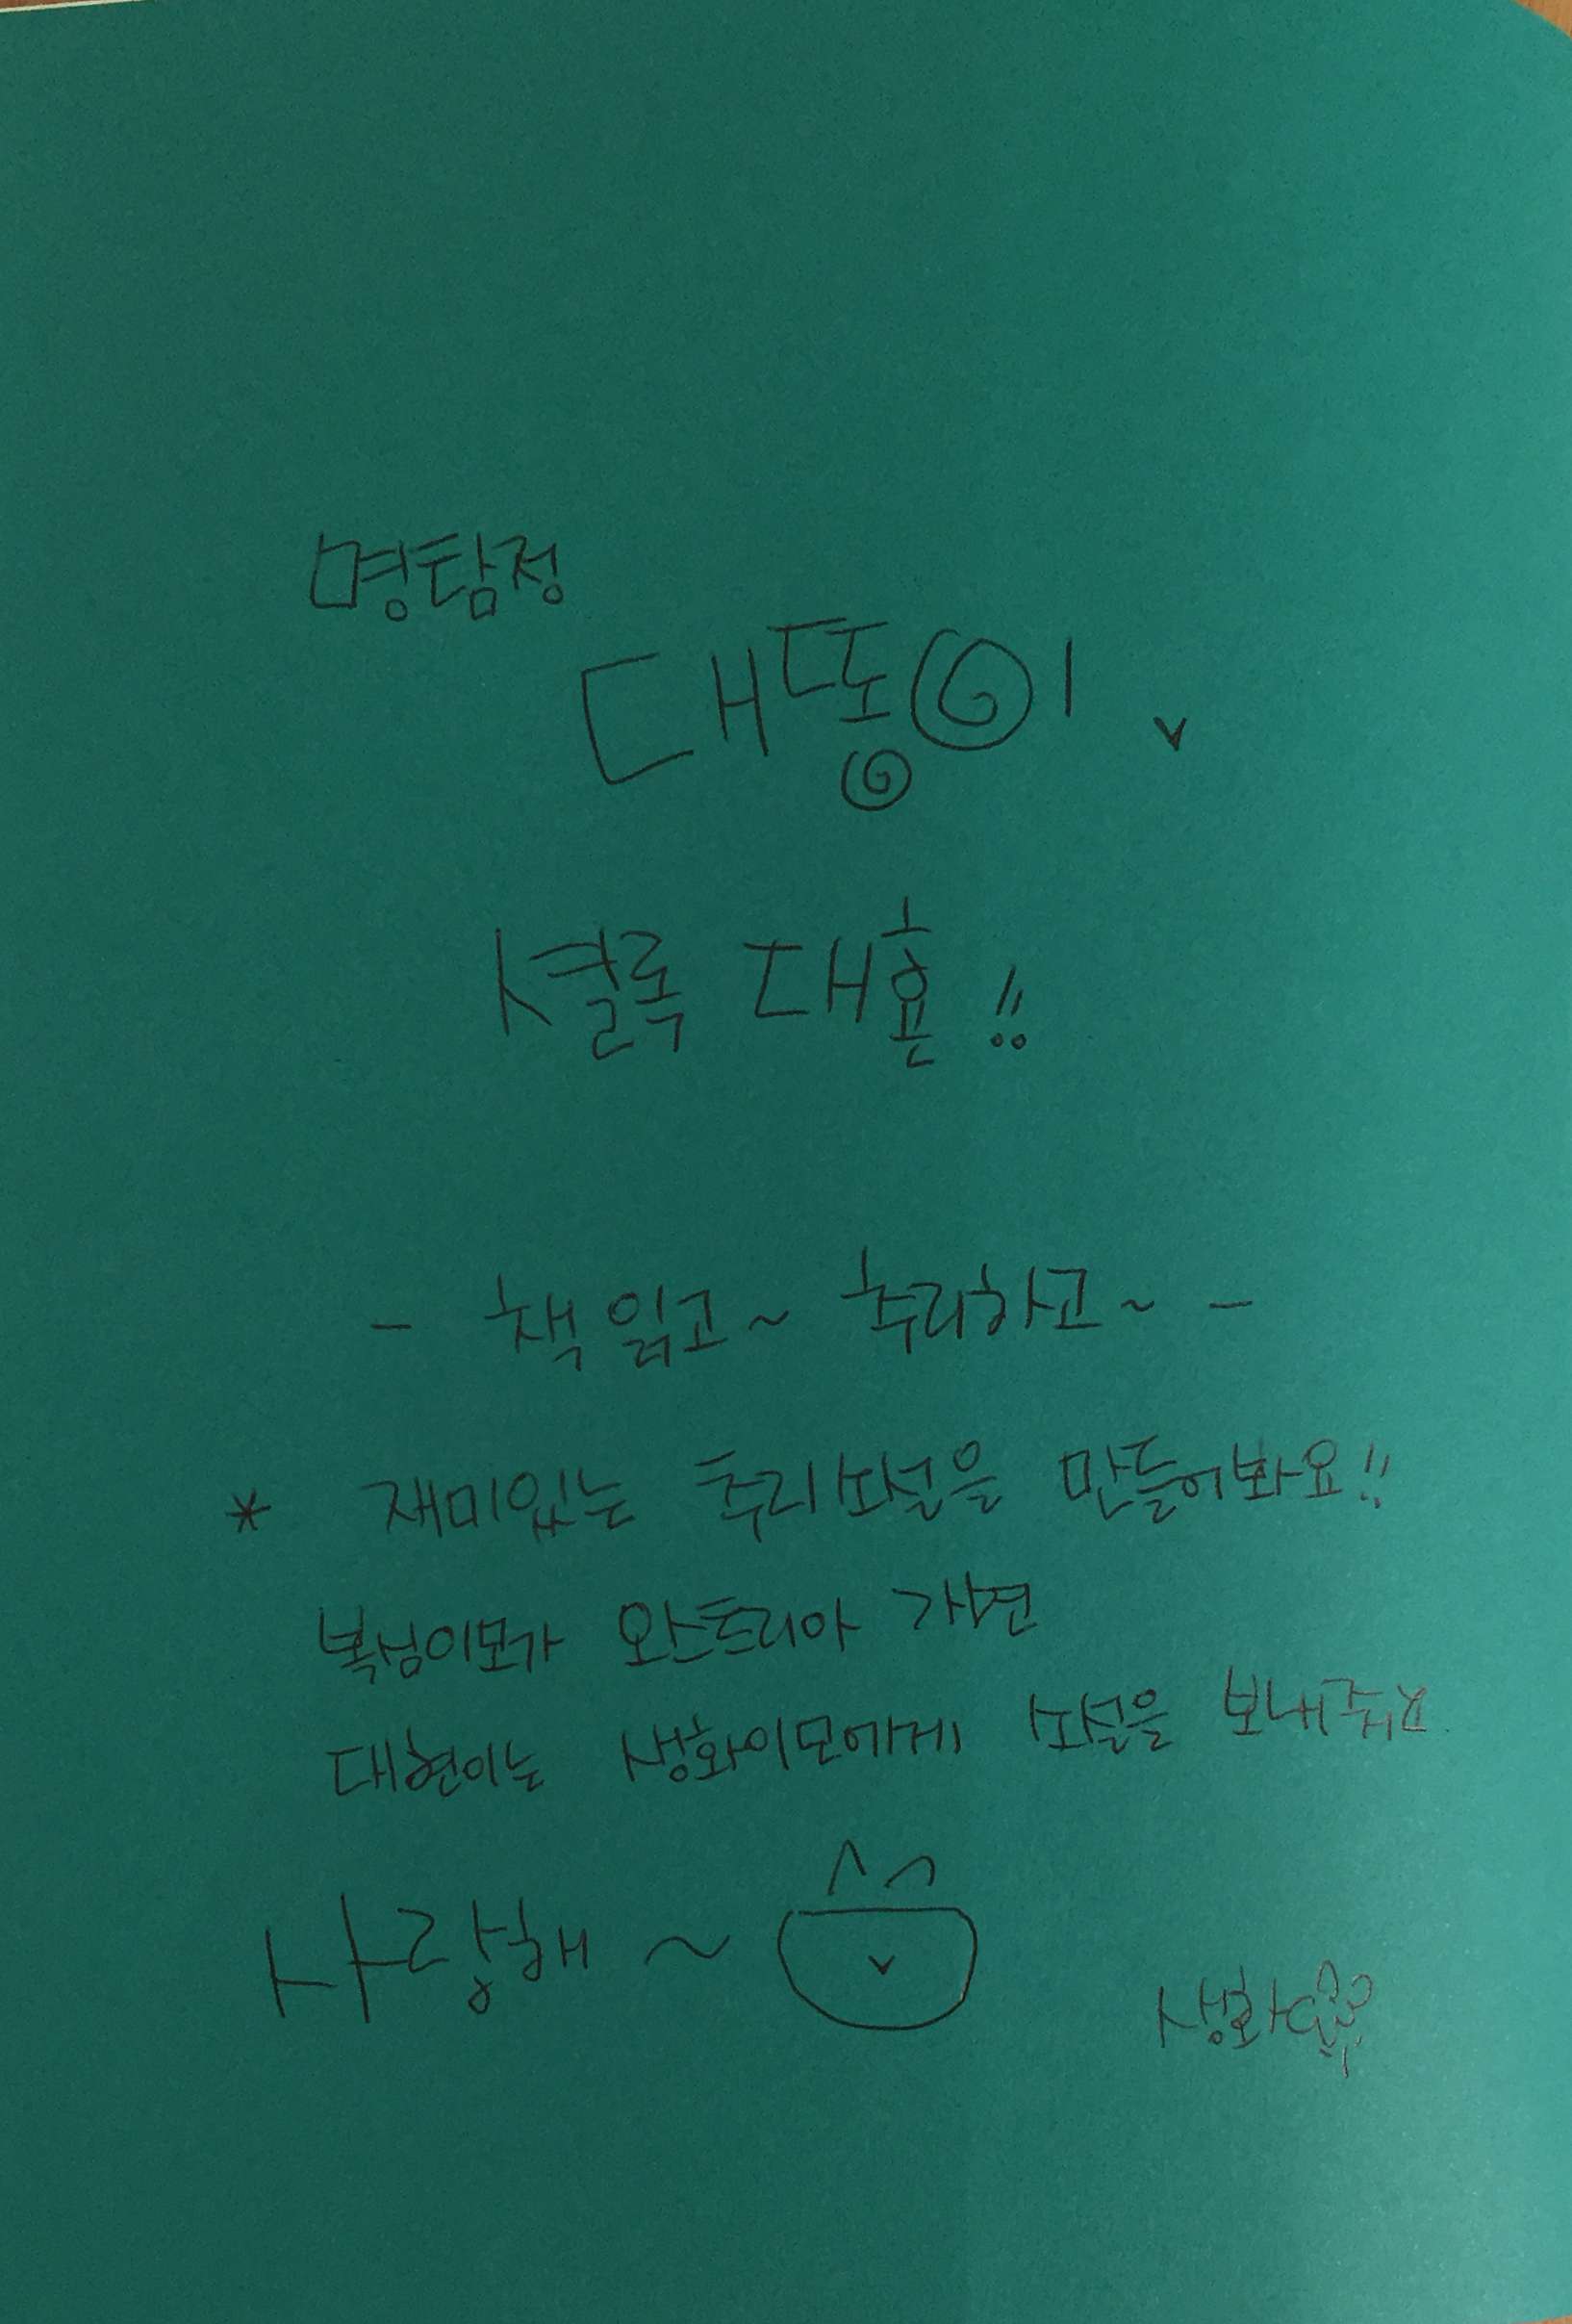 명탐정
대똥이
셜록 대횬!!
- 책 읽고~ 추리하고~ -
* 재미있는 추리소설을 만들어봐요!!
복심이모가 오스트리아 가면
대현이는 생화이모에게 소설을 보내줘요
사랑해~
생화